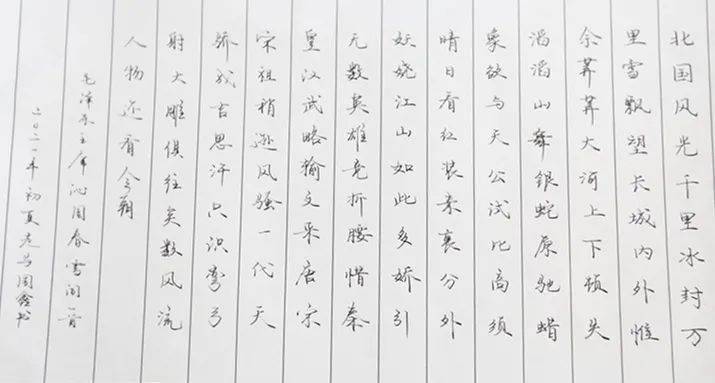 北国风光千里冰封万
里雪飘望长城内外惟
余莽莽大河上下顿失
滔滔山舞银蛇原驰蜡
象欲与天公试比高须
晴日看红装素裹分外
妖娆江山如此多娇引
无数英雄竞折腰惜秦
皇汉武略输文采唐宗
宋祖稍逊风骚一代天
骄成吉思汗只识弯弓
射大雕俱往矣数风流
人物还看今朝
毛泽东主席沁园春雪词一首
二〇二一年初夏